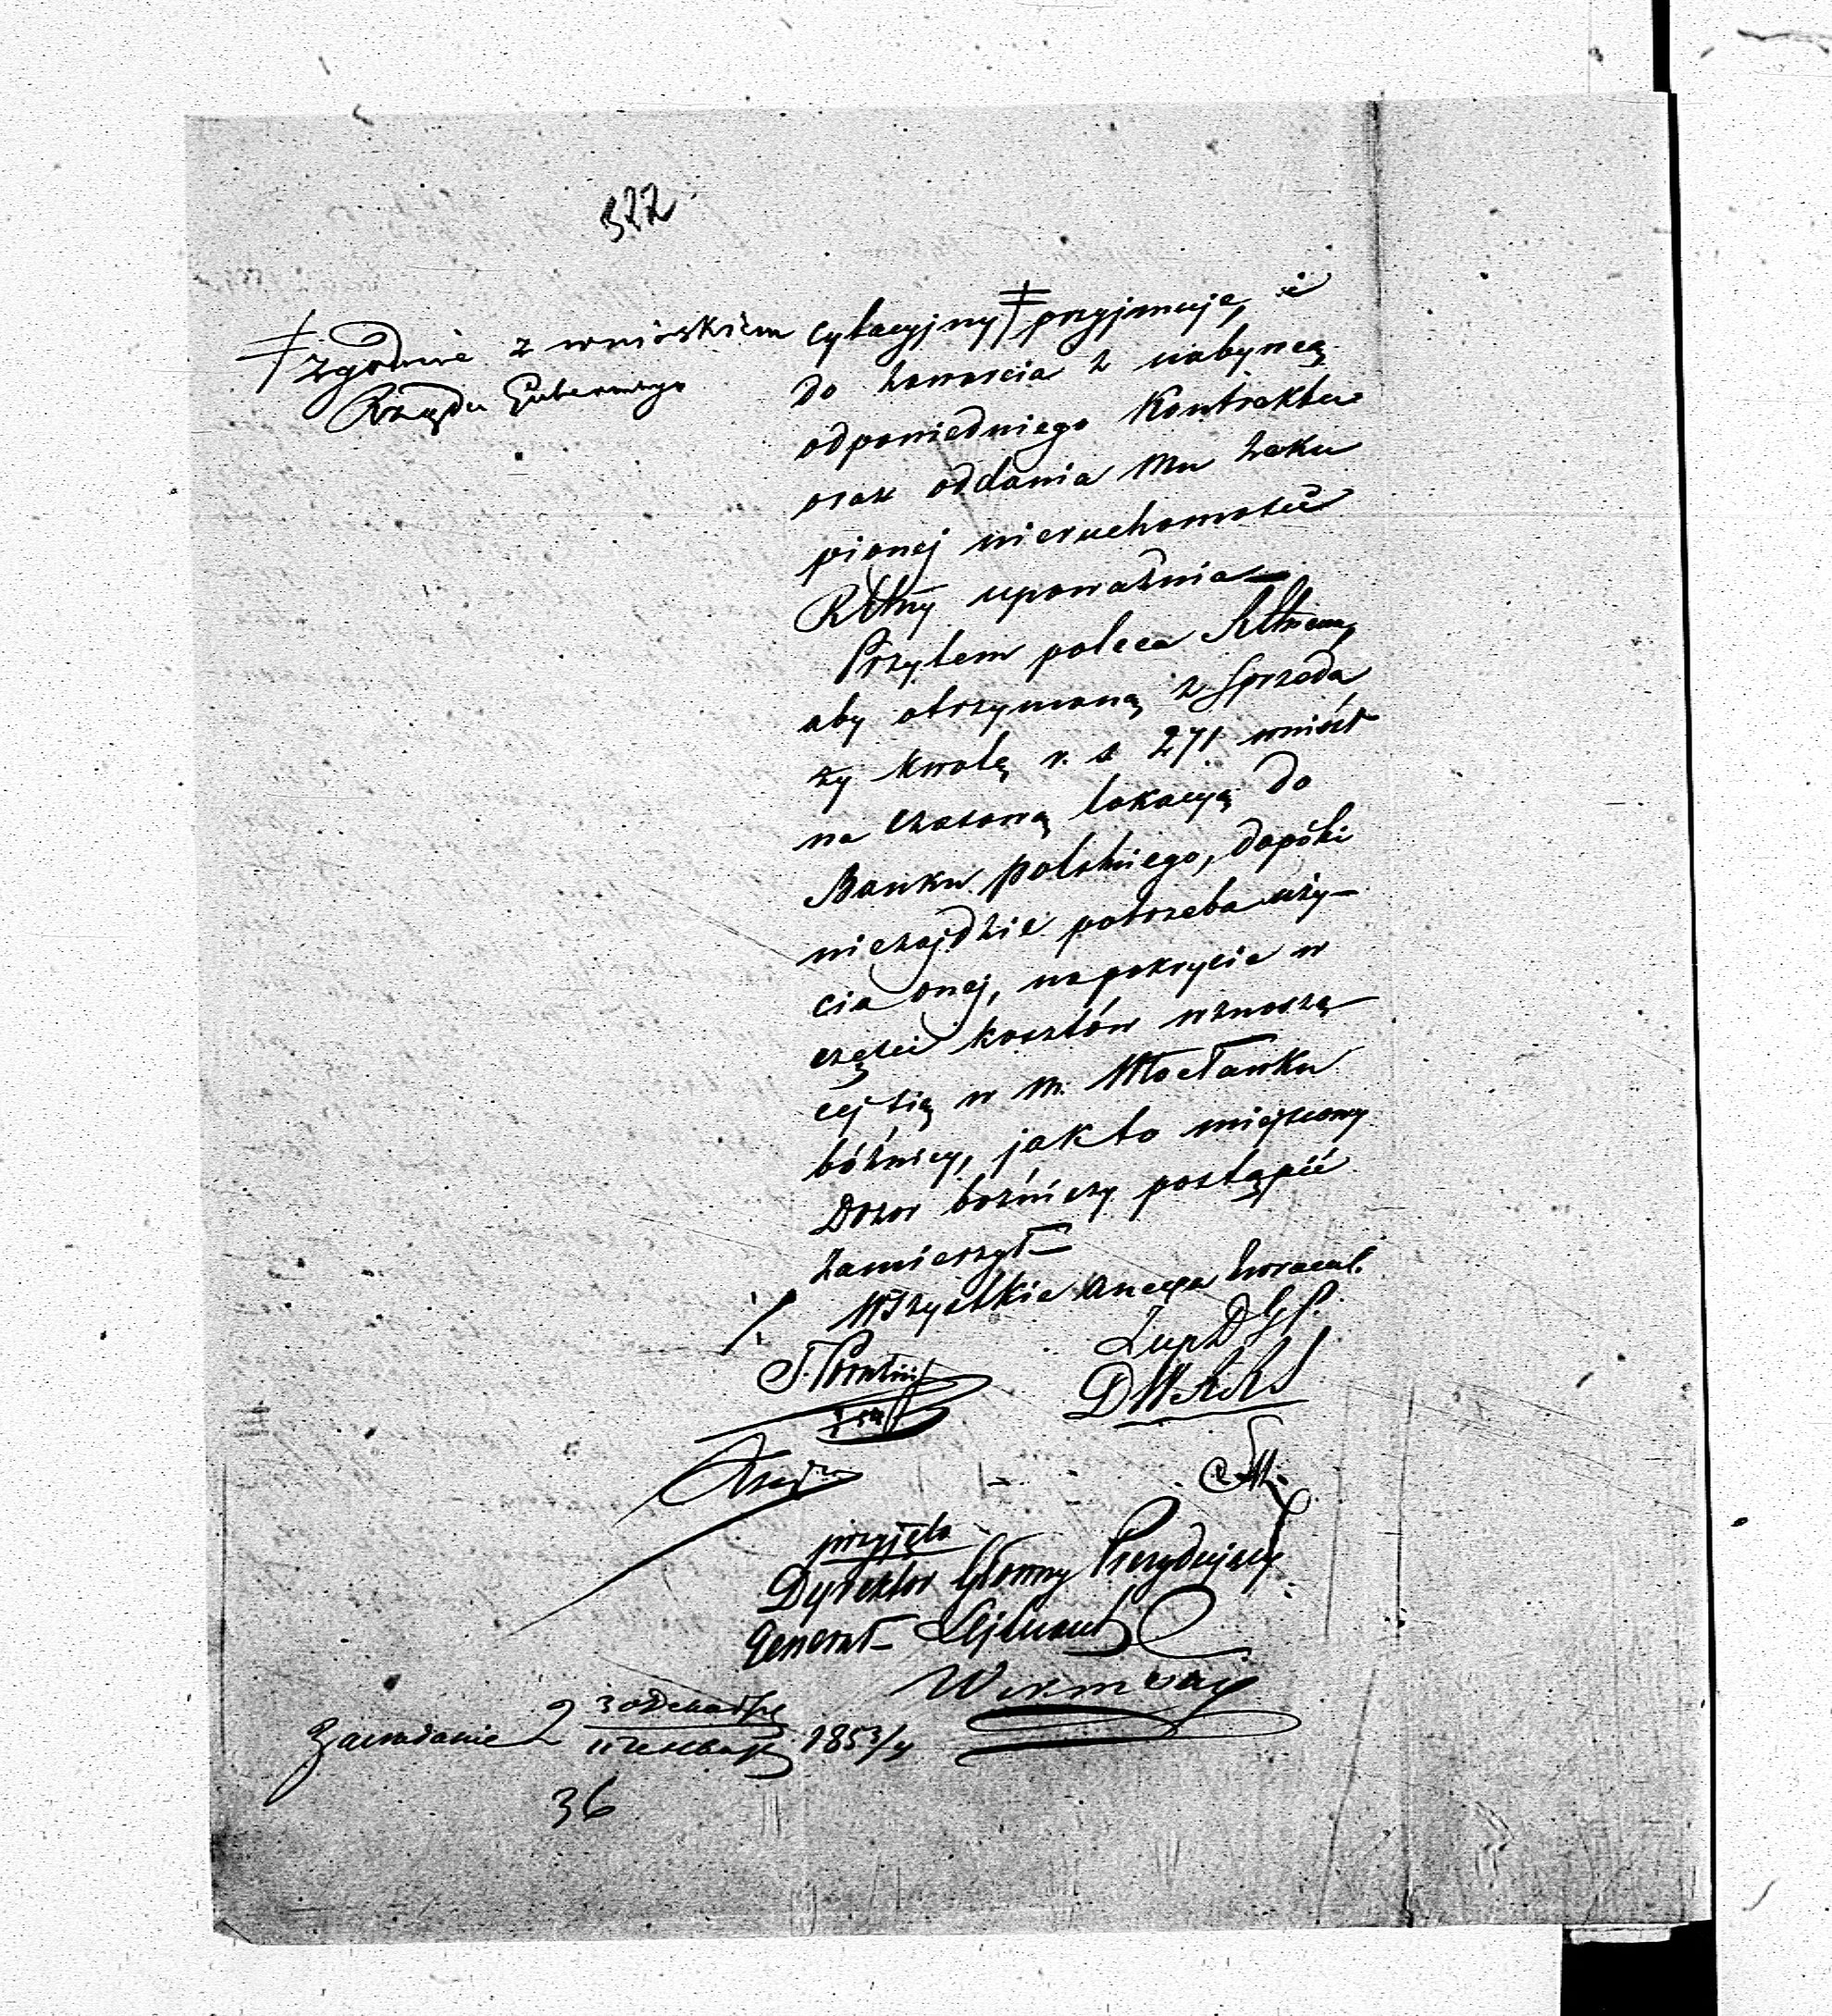 322
‡ zgodnie z wnioskiem
Rządu Gubernego
cytacyjny ‡ przyjmuje, i
do zawarcia z nabywcą
odpowiedniego Kontraktu
oraz oddania mu zaku
pionej nieruchomości
upoważnia
Przytem poleca
aby otrzymaną z sprzeda
ży kwotę r. s 271 wniósł
na czasową lokacyą do
Banku polskiego, dopóki
niezajdzie potrzeba uży-
cia onej, na pokrycie w
części kosztów wznoszą
cej się w m. Włocławku
bóżnicy, jak to miejscowy
Dozor bożniczy postąpić
zamierzył
Wszystkie anexa
przyjęto
Dyrektor Główny Prezydujący
Generał Lejtnant
Zawiadanie 2 30 Декабря
11 Генваря 1853/4
36